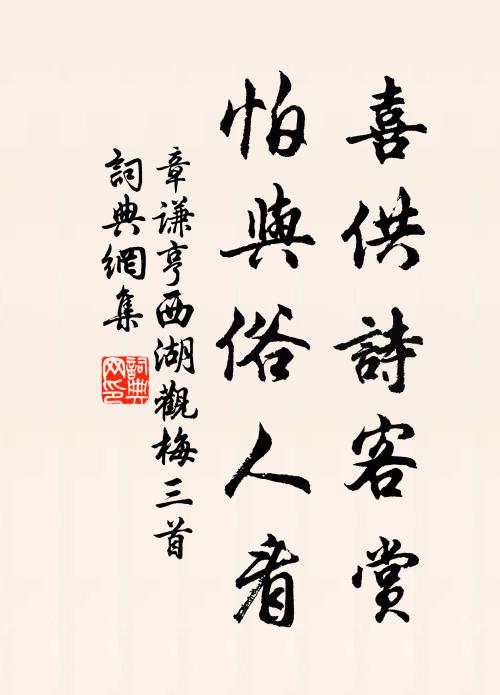 喜供詩客賞
怕與俗人看
章謙亨西湖觀梅三首
詞典網集
詞典网印